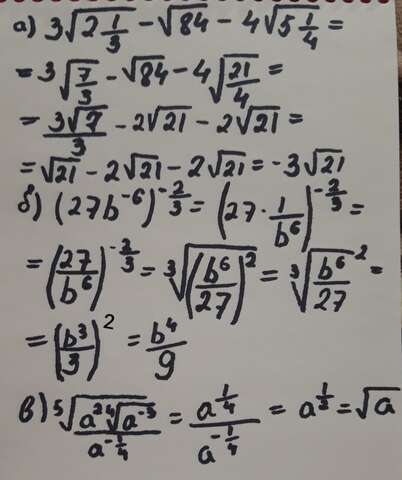 а) 3√(2 1/3) - √84 - 4√(5 1/4) =
= 3√(7/3) - √84 - 4√(21/4) =
= 3√7/3 - 2√21 - 2√21 =
= √21 - 2√21 - 2√21 = -3√21
б) (27b⁻⁶)^(-2/3) = (27 · 1/b⁶)^(-2/3) =
= (27/b⁶)^(-2/3) = ³√((b⁶/27)²) = ³√(b⁶/27)² =
= (b³/3)² = b⁴/9
в) ⁵√(a²⁴√(a⁻³))/a^(-1/4) = a^(1/4)/a^(-1/4) = a^(1/2) = √a